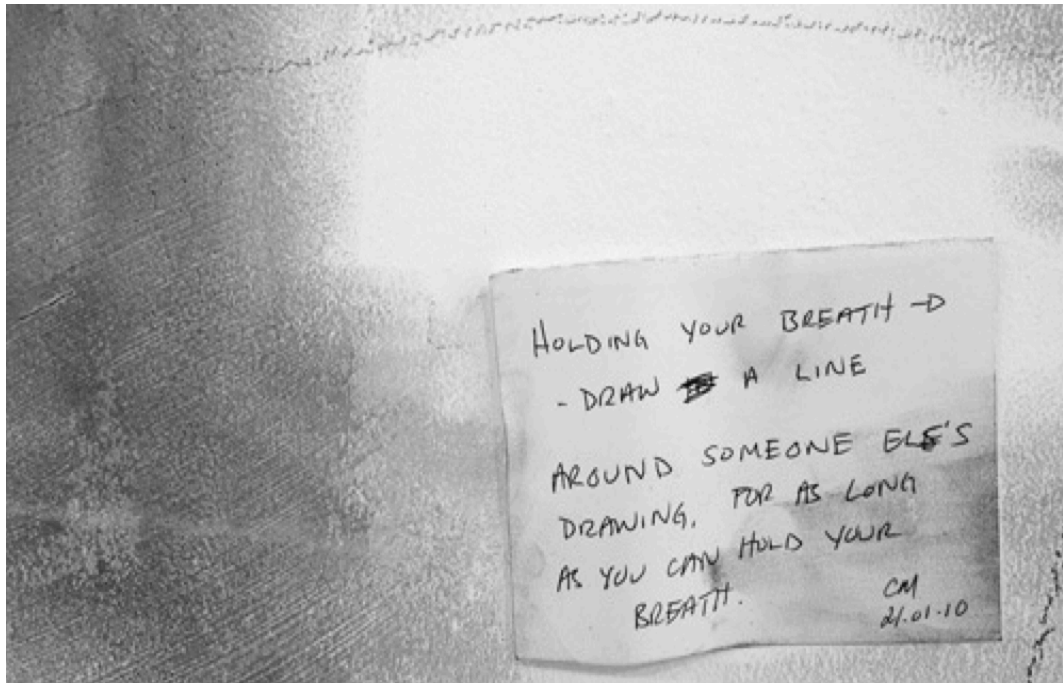 HOLDING YOUR BREATH →
- DRAW A LINE
AROUND SOMEONE ELSE'S
DRAWING, FOR AS LONG
AS YOU CAN HOLD YOUR
BREATH.
CM
21.01.10